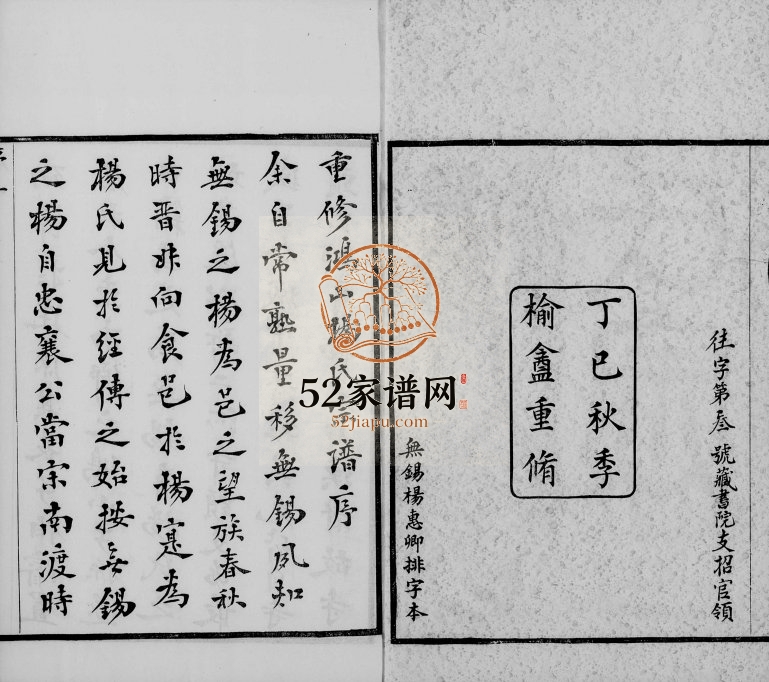 往字第叄號藏書院支招官領
丁巳秋季
榆盦重脩
無錫楊惠卿排字本
重修鴻山楊氏宗譜序
余自常熟量移無錫夙知
無錫之楊為邑之望族春秋
時晋羊向食邑於楊寔為
楊氏見於經傳之始按無錫
之楊自忠襄公當宋南渡時
52家谱网
52jiapu.com